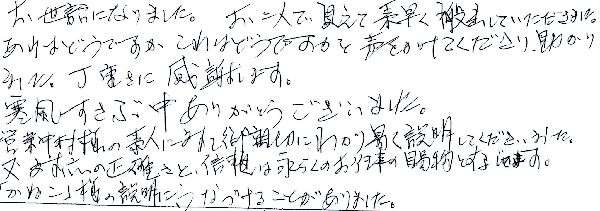 お世話になりました。 お二人で見えて素早く搬出していただきました。
あれはどうですか これはどうですかと 声をかけてくださり 助かり
ました。丁寧さに 感謝します。
寒風ふきすさぶ中 ありがとうございました。
営業中村様の素人に 御親切にわかり易く説明してくださいました。
又 の正確さと、信頼は 永らくのお仕事の賜物と 思います。
様の説明に うなづけることがありました。